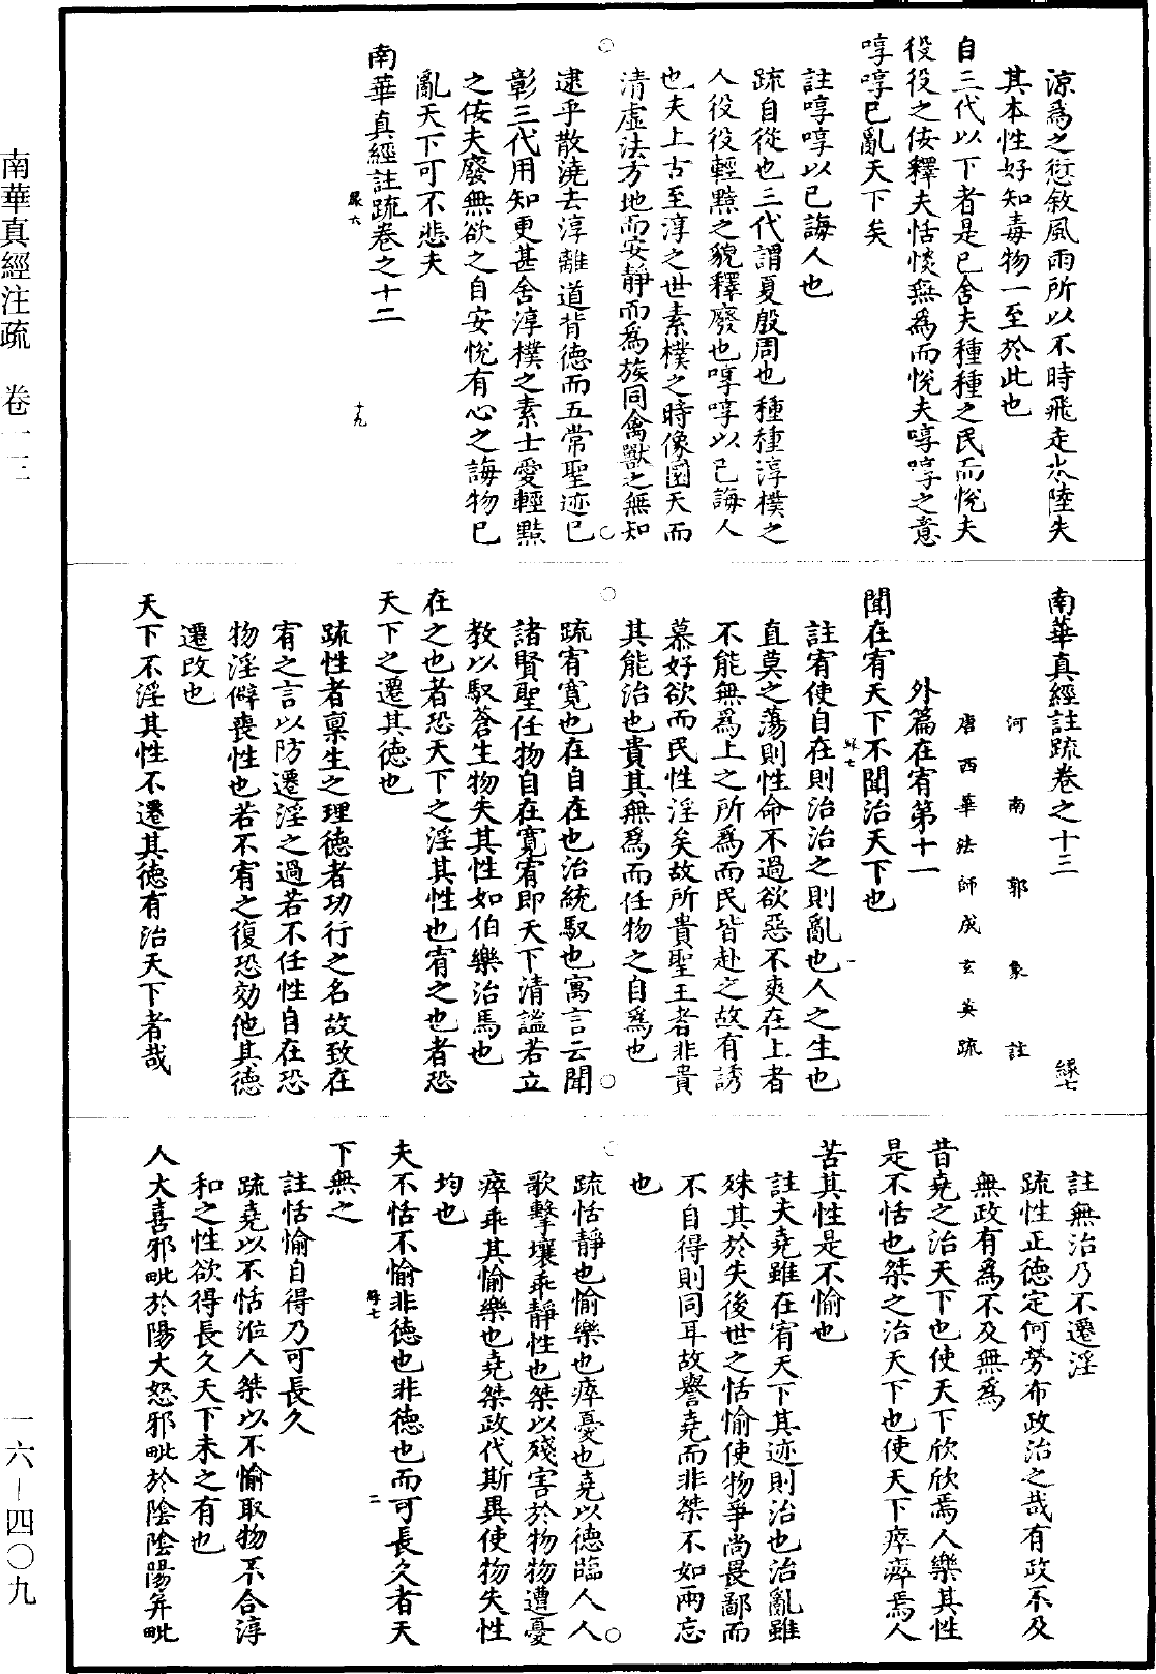 南華真經注疏　卷一三
一六—四〇九
涼為之愆敘風雨所以不時飛走水陸失
其本性好知毒物一至於此也
自三代以下者是已舍夫種種之民而悅夫
役役之佞釋夫恬惔無為而悅夫啍啍之意
啍啍已亂天下矣
註啍啍以已誨人也
疏自從也三代謂夏殷周也種種淳樸之
人役役輕黠之貌釋廢也啍啍以已誨人
也夫上古至淳之世素樸之時像圓天而
清虛法方地而安靜而為族同禽獸之無知
逮乎散澆去淳離道背德而五常聖迹已
彰三代用知更甚舍淳樸之素士愛輕黠
之佞夫廢無欲之自安悅有心之誨物已
亂天下可不悲夫
南華真經註疏卷之十二
十九
南華真經註疏卷之十三
河南郭象註
唐西華法師成玄英疏
外篇在宥第十一
聞在宥天下不聞治天下也
註宥使自在則治治之則亂也人之生也
直莫之蕩則性命不過欲惡不爽在上者
不能無為上之所為而民皆赴之故有誘
慕好欲而民性淫矣故所貴聖王者非貴
其能治也貴其無為而任物之自為也
疏宥寬也在自在也治統馭也寓言云聞
諸賢聖任物自在寬宥即天下清謐若立
教以馭蒼生物失其性如伯樂治馬也
在之也者恐天下之淫其性也宥之也者恐
天下之遷其德也
疏性者稟生之理德者功行之名故致在
宥之言以防遷淫之過若不任性自在恐
物淫僻喪性也若不宥之復恐効他其德
遷改也
天下不淫其性不遷其德有治天下者哉
註無治乃不遷淫
疏性正德定何勞布政治之哉有政不及
無政有為不及無為
昔堯之治天下也使天下欣欣焉人樂其性
是不恬也桀之治天下也使天下瘁瘁焉人
苦其性是不愉也
註夫堯雖在宥天下其迹則治也治亂雖
殊其於失後世之恬愉使物爭尚畏鄙而
不自得則同耳故譽堯而非桀不如兩忘
也
疏恬靜也愉樂也瘁憂也堯以德臨人人
歌擊壤乖靜性也桀以殘害於物物遭憂
瘁乖其愉樂也堯桀政代斯異使物失性
均也
夫不恬不愉非德也非德也而可長久者天
下無之
註恬愉自得乃可長久
疏堯以不恬涖人桀以不愉取物不合淳
和之性欲得長久天下未之有也
人大喜邪毗於陽大怒邪毗於陰陰陽并毗